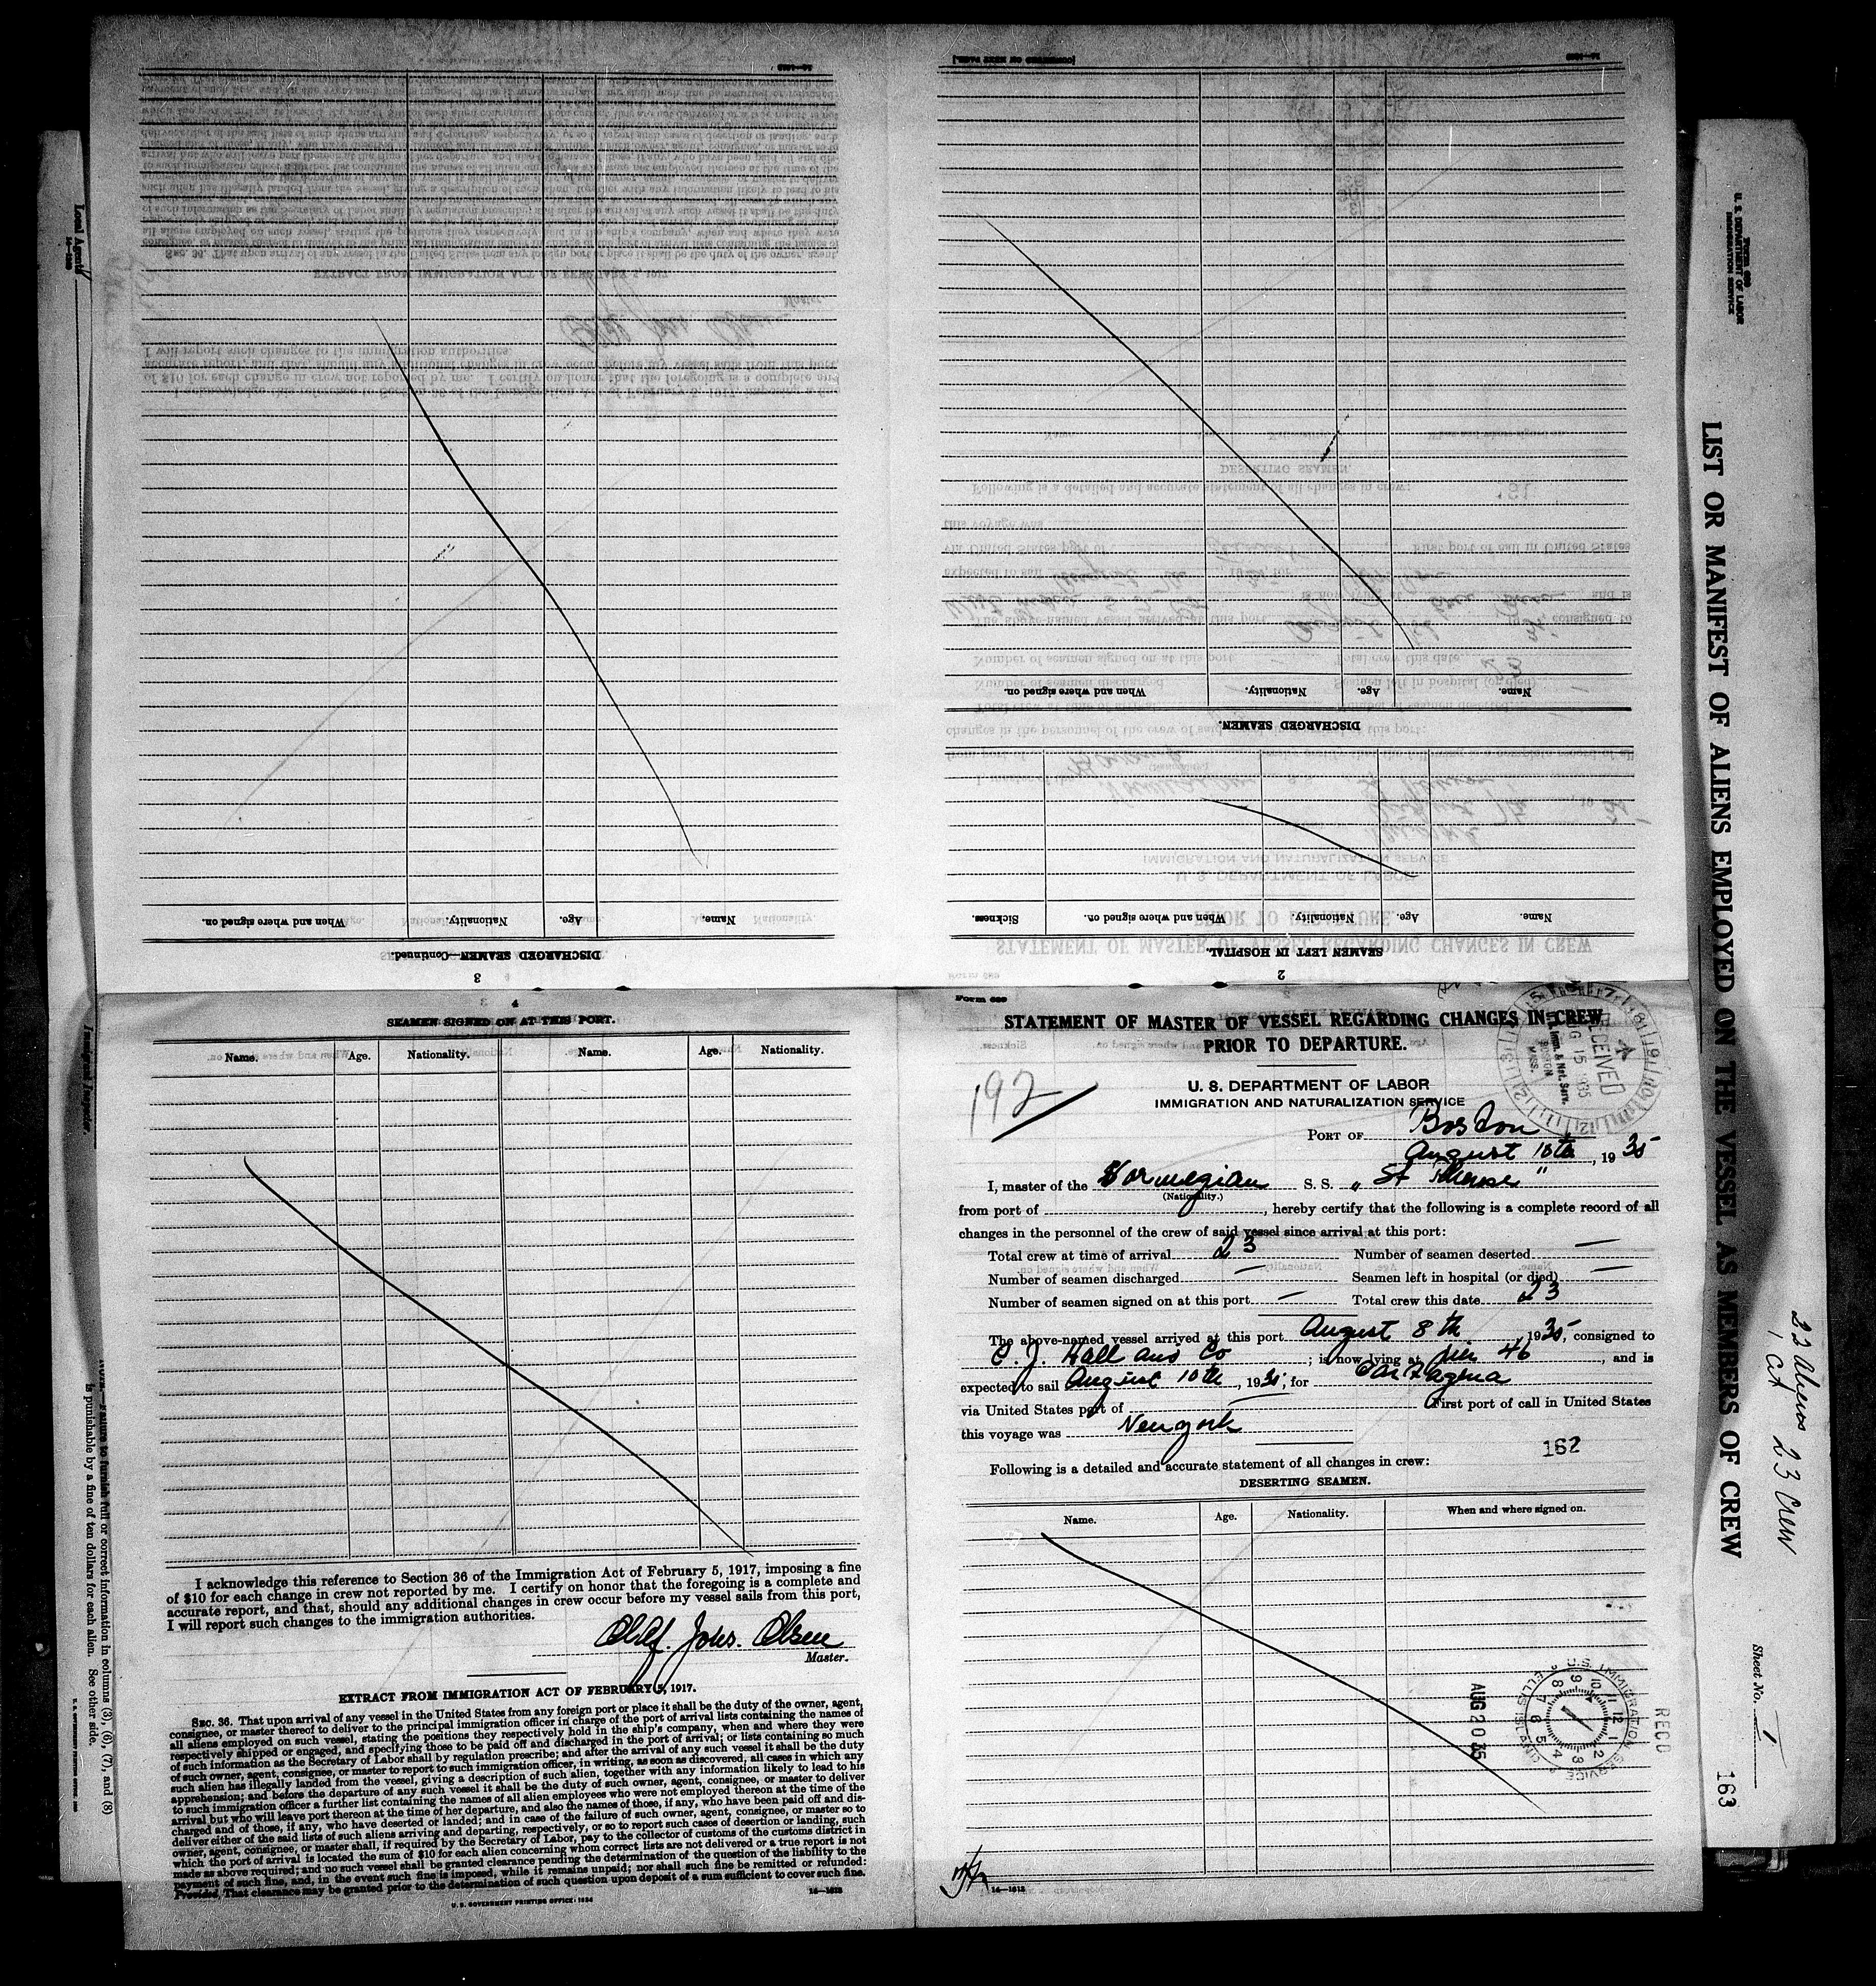 14—1613
[CONTINUED ON NEXT PAGE.]
14—1613
Name.
Age.
Nationality.
When and where signed on.
DISCHARGED SEAMEN—Continued.
3
DISCHARGED SEAMEN.
Name.
Age.
Nationality.
When and where signed on.
SEAMEN LEFT IN HOSPITAL.
Name.
Age.
Nationality.
When and where signed on.
Sickness.
2
4
SEAMEN SIGNED ON AT THIS PORT.
Name. Age. Nationality. Name. Age. Nationality.
I acknowledge this reference to Section 36 of the Immigration Act of February 5, 1917, imposing a fine
of $10 for each change in crew not reported by me. I certify on honor that the foregoing is a complete and
accurate report, and that, should any additional changes in crew occur before my vessel sails from this port,
I will report such changes to the immigration authorities.
Olaf. Johs. Olsen
Master.
EXTRACT FROM IMMIGRATION ACT OF FEBRUARY 5, 1917.
SEC. 36. That upon arrival of any vessel in the United States from any foreign port or place it shall be the duty of the owner, agent,
consignee, or master thereof to deliver to the principal immigration officer in charge of the port of arrival lists containing the names of
all aliens employed on such vessel, stating the positions they respectively hold in the ship's company, when and where they were
respectively shipped or engaged, and specifying those to be paid off and discharged in the port of arrival; or lists containing so much
of such information as the Secretary of Labor shall by regulation prescribe; and after the arrival of any such vessel it shall be the duty
of such owner, agent, consignee, or master to report to such immigration officer, in writing, as soon as discovered, all cases in which any
such alien has illegally landed from the vessel, giving a description of such alien, together with any information likely to lead to his
apprehension; and before the departure of any such vessel it shall be the duty of such owner, agent, consignee, or master to deliver
to such immigration officer a further list containing the names of all alien employees who were not employed thereon at the time of the
arrival but who will leave port thereon at the time of her departure, and also the names of those, if any, who have been paid off and dis-
charged and of those, if any, who have deserted or landed; and in case of the failure of such owner, agent, consignee, or master so to
deliver either of the said lists of such aliens arriving and departing, respectively, or so to report such cases of desertion or landing, such
owner, agent, consignee, or master shall, if required by the Secretary of Labor, pay to the collector of customs of the customs district in
which the port of arrival is located the sum of $10 for each alien concerning whom correct lists are not delivered or a true report is not
made as above required; and no such vessel shall be granted clearance pending the determination of the question of the liability to the
payment of such fine, and, in the event such fine is imposed, while it remains unpaid; nor shall such fine be remitted or refunded:
Provided, That clearance may be granted prior to the determination of such question upon deposit of a sum sufficient to cover such fine.
U. S. GOVERNMENT PRINTING OFFICE: 1934
14—1613
Form 689
STATEMENT OF MASTER OF VESSEL REGARDING CHANGES IN CREW
PRIOR TO DEPARTURE.
192
U. S. DEPARTMENT OF LABOR
IMMIGRATION AND NATURALIZATION SERVICE
RECEIVED
AUG 15 1935
Imm. & Nat. Serv.
BOSTON
MASS.
PORT OF Boston
August 10th, 1935
I, master of the Norwegian S. S. "St Therese"
(Nationality.)
from port of , hereby certify that the following is a complete record of all
changes in the personnel of the crew of said vessel since arrival at this port:
Total crew at time of arrival 23 Number of seamen deserted —
Number of seamen discharged — Seamen left in hospital (or died) —
Number of seamen signed on at this port — Total crew this date 23
The above-named vessel arrived at this port August 8th, 1935, consigned to
C. J. Hall and Co ; is now lying at pier 46, and is
expected to sail August 10th, 1935, for Cartagena
via United States port of — First port of call in United States
this voyage was New york
162
Following is a detailed and accurate statement of all changes in crew:
DESERTING SEAMEN.
Name. Age. Nationality. When and where signed on.
U.S. IMMIGRATION SERVICE ELLIS ISLAND
REC'D
AUG 20 35
14—1613
Form 680
U. S. DEPARTMENT OF LABOR
IMMIGRATION SERVICE
LIST OR MANIFEST OF ALIENS EMPLOYED ON THE VESSEL AS MEMBERS OF CREW
22 Aliens 23 Crew
1 Cit
Sheet No. 1
163
Local Agents
Immigrant Inspector.
Failure to furnish full or correct information in columns (3), (6), (7), and (8)
is punishable by a fine of ten dollars for each alien. See other side.